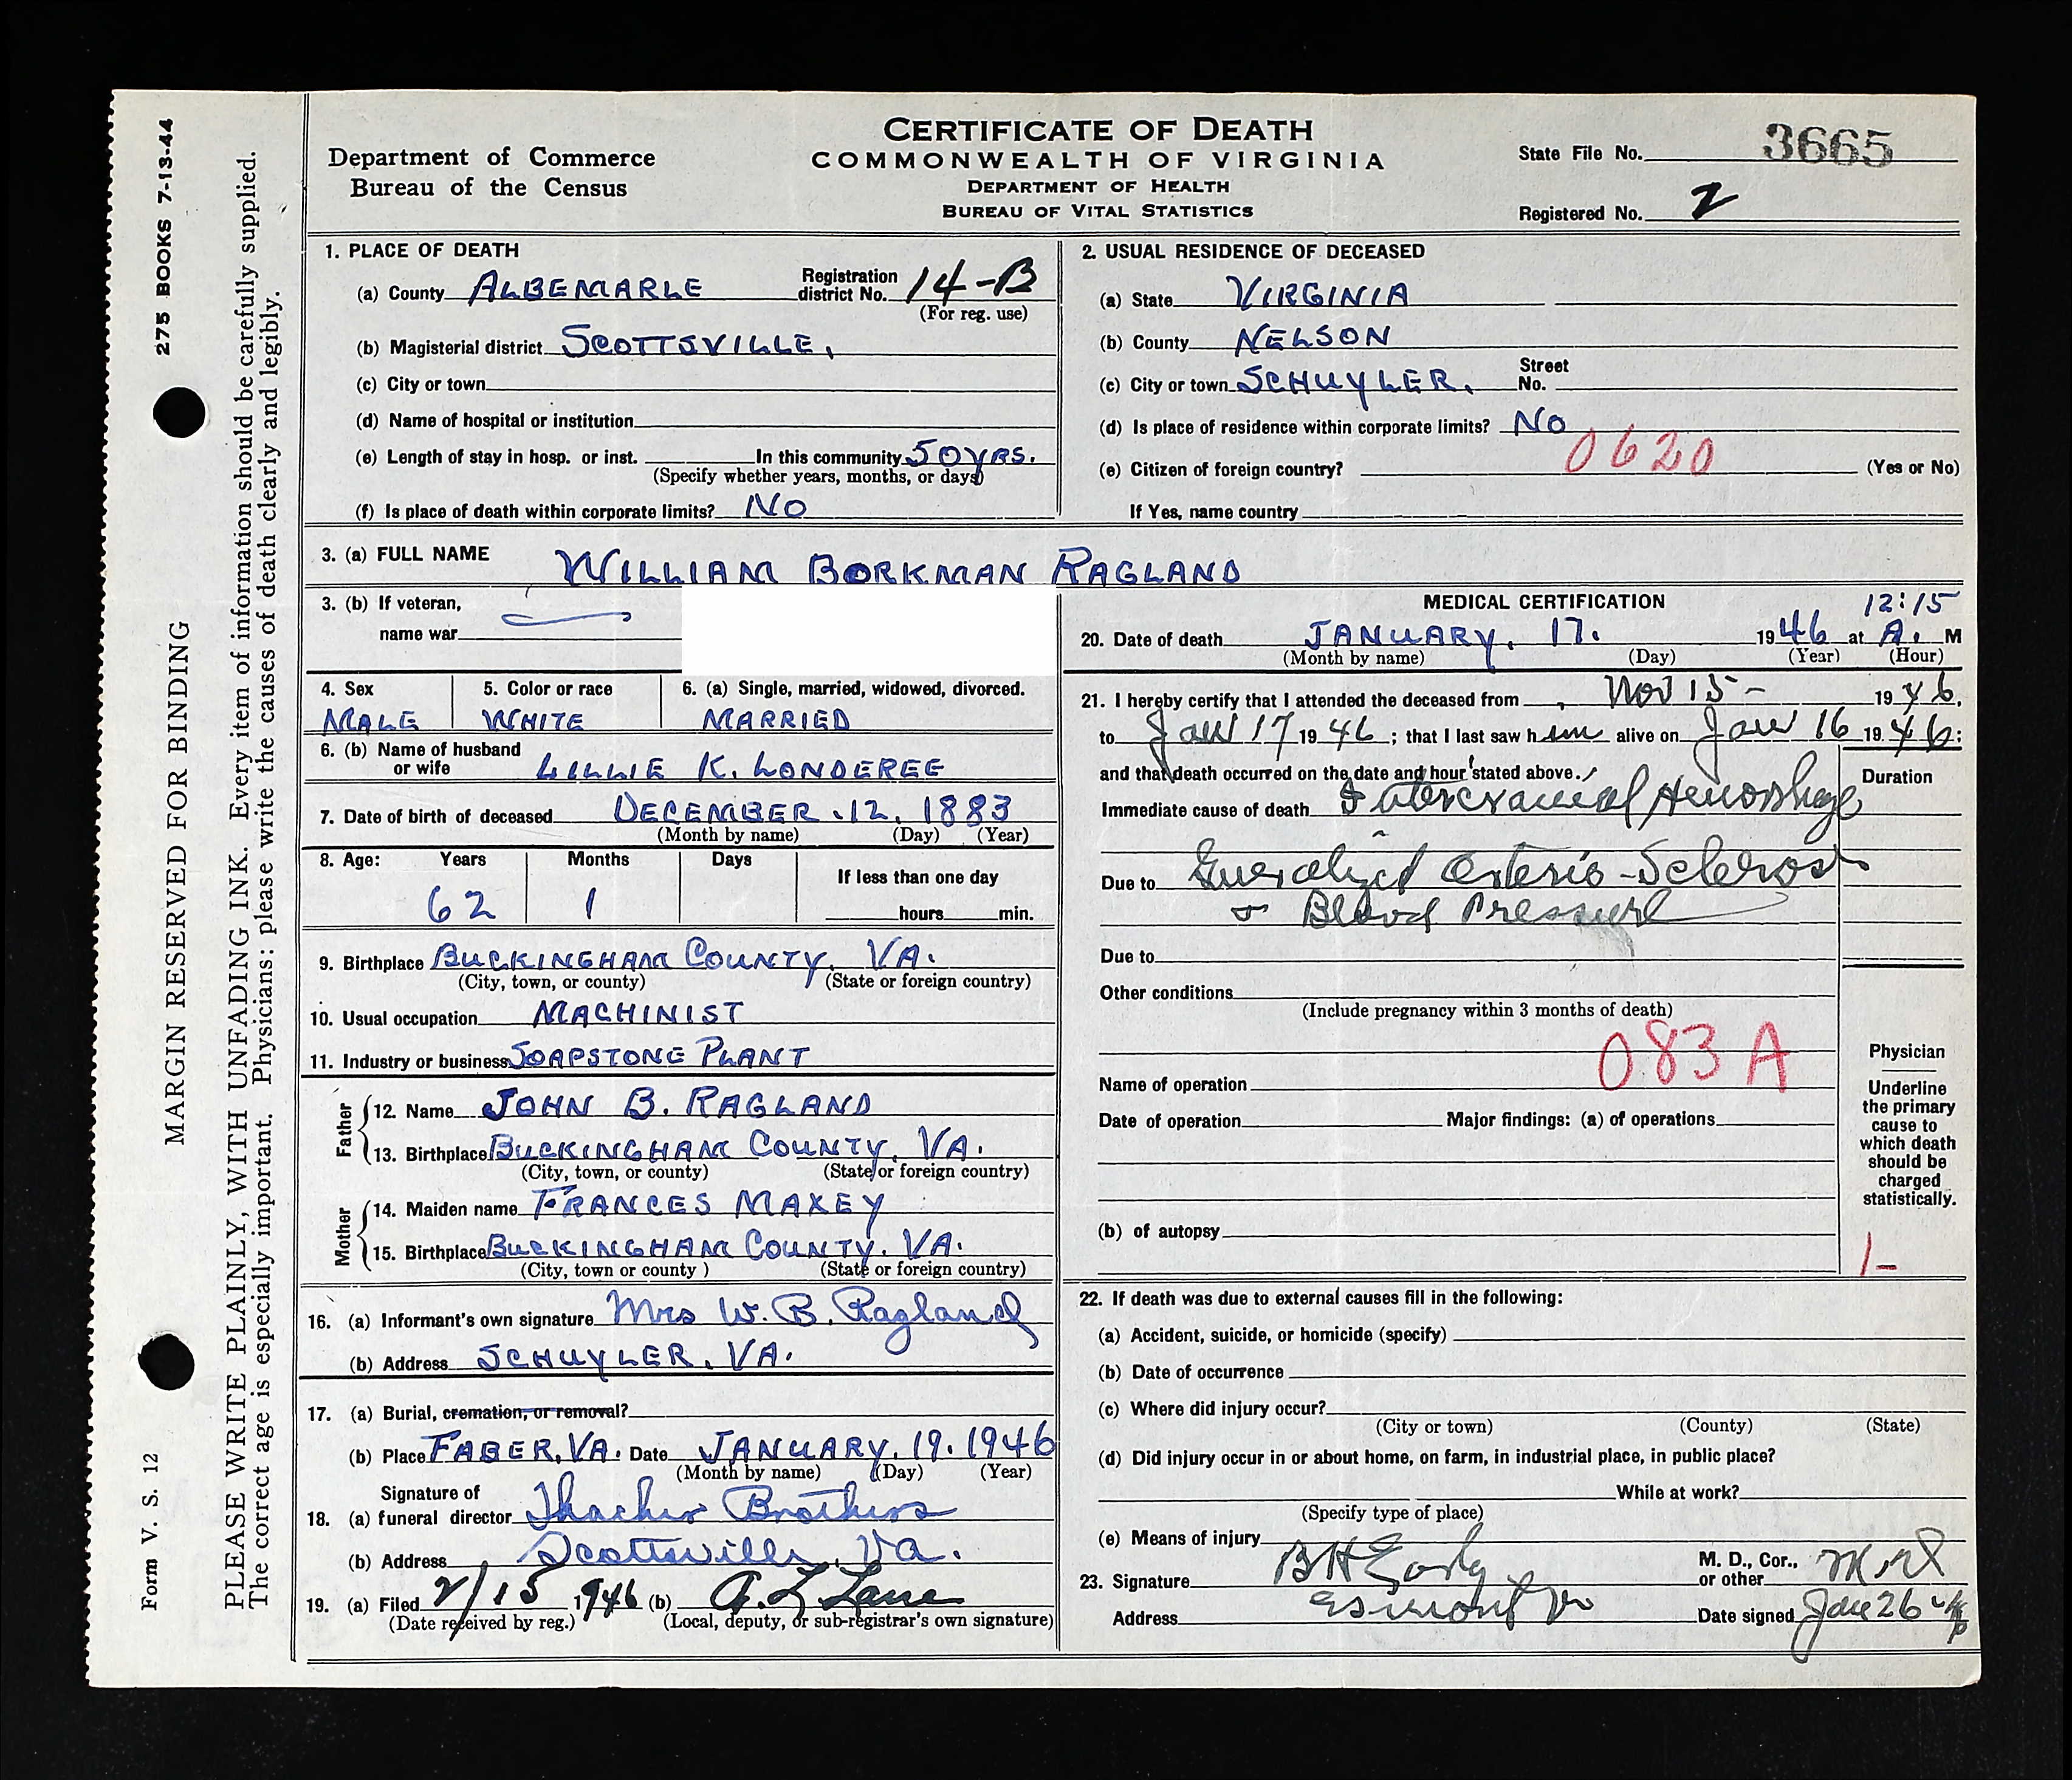 275 BOOKS 7-13-44
MARGIN RESERVED FOR BINDING
Form V. S. 12
PLEASE WRITE PLAINLY, WITH UNFADING INK. Every item of information should be carefully supplied.
The correct age is especially important. Physicians: please write the causes of death clearly and legibly.
Department of Commerce
Bureau of the Census
CERTIFICATE OF DEATH
COMMONWEALTH OF VIRGINIA
DEPARTMENT OF HEALTH
BUREAU OF VITAL STATISTICS
State File No. 3665
Registered No. 2
1. PLACE OF DEATH
(a) County ALBEMARLE Registration district No. 14-B
(For reg. use)
(b) Magisterial district SCOTTSVILLE,
(c) City or town
(d) Name of hospital or institution
(e) Length of stay in hosp. or inst. In this community 50 YRS.
(Specify whether years, months, or days)
(f) Is place of death within corporate limits? NO
2. USUAL RESIDENCE OF DECEASED
(a) State VIRGINIA
(b) County NELSON
(c) City or town SCHUYLER. Street No.
(d) Is place of residence within corporate limits? NO
0620
(e) Citizen of foreign country? (Yes or No)
If Yes, name country
3. (a) FULL NAME WILLIAM BORKMAN RAGLAND
3. (b) If veteran,
name war
4. Sex 5. Color or race 6. (a) Single, married, widowed, divorced.
MALE WHITE MARRIED
6. (b) Name of husband
or wife LILLIE K. LONDEREE
7. Date of birth of deceased DECEMBER. 12. 1883
(Month by name) (Day) (Year)
8. Age: Years Months Days If less than one day
62 1 hours min.
9. Birthplace BUCKINGHAM COUNTY, VA.
(City, town, or county) (State or foreign country)
10. Usual occupation MACHINIST
11. Industry or business SOAPSTONE PLANT
Father
12. Name JOHN B. RAGLAND
13. Birthplace BUCKINGHAM COUNTY, VA.
(City, town, or county) (State or foreign country)
Mother
14. Maiden name FRANCES MAXEY
15. Birthplace BUCKINGHAM COUNTY. VA.
(City, town or county ) (State or foreign country)
16. (a) Informant's own signature Mrs W. B. Ragland
(b) Address SCHUYLER, VA.
17. (a) Burial, cremation, or removal?
(b) Place FABER, VA. Date JANUARY, 19. 1946
(Month by name) (Day) (Year)
Signature of
18. (a) funeral director Thacker Brothers
(b) Address Scottsville, Va.
19. (a) Filed 2/15 1946 (b) A. L. Lane
(Date received by reg.) (Local, deputy, or sub-registrar's own signature)
MEDICAL CERTIFICATION 12:15
20. Date of death JANUARY, 17. 1946 at A. M
(Month by name) (Day) (Year) (Hour)
21. I hereby certify that I attended the deceased from Nov 15 - 1946,
to Jan 17 1946; that I last saw him alive on Jan 16 1946:
and that death occurred on the date and hour stated above. Duration
Immediate cause of death Intercranial Hemorhage
Due to Generalized Arterio-Sclerosis
+ Blood Pressure
Due to
Other conditions
(Include pregnancy within 3 months of death)
083A
Name of operation
Date of operation Major findings: (a) of operations
(b) of autopsy
Physician
Underline
the primary
cause to
which death
should be
charged
statistically.
1-
22. If death was due to external causes fill in the following:
(a) Accident, suicide, or homicide (specify)
(b) Date of occurrence
(c) Where did injury occur?
(City or town) (County) (State)
(d) Did injury occur in or about home, on farm, in industrial place, in public place?
While at work?
(Specify type of place)
(e) Means of injury
23. Signature B H Early M. D., Cor., or other M D
Address Esmont Va Date signed Jan 26 46